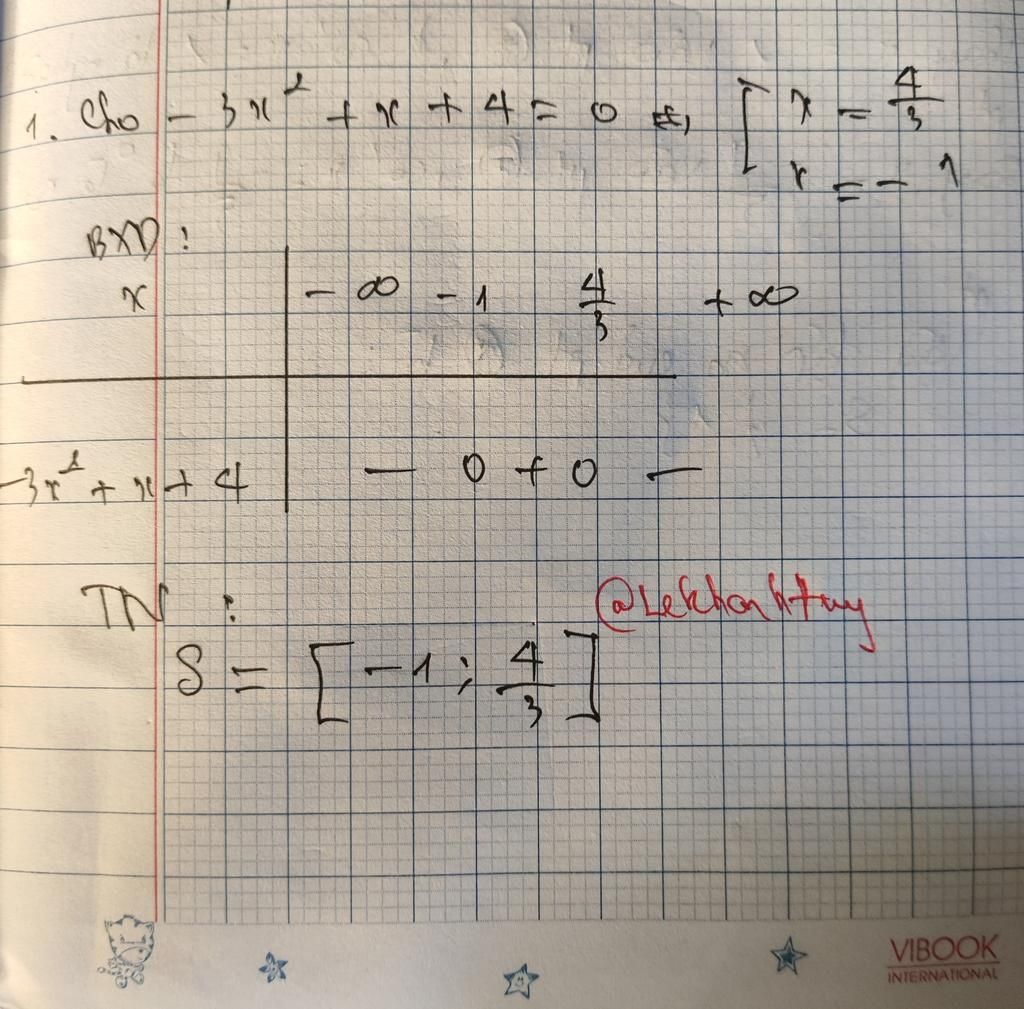 1. Cho - 3x² + x + 4 = 0 ⇔ [ x = 4/3
x = - 1
BXD :
x - ∞ - 1 4/3 + ∞
-3x² + x + 4 - 0 + 0 -
TN :
@Lekhanhtuy
S = [ -1 ; 4/3 ]
VIBOOK
INTERNATIONAL